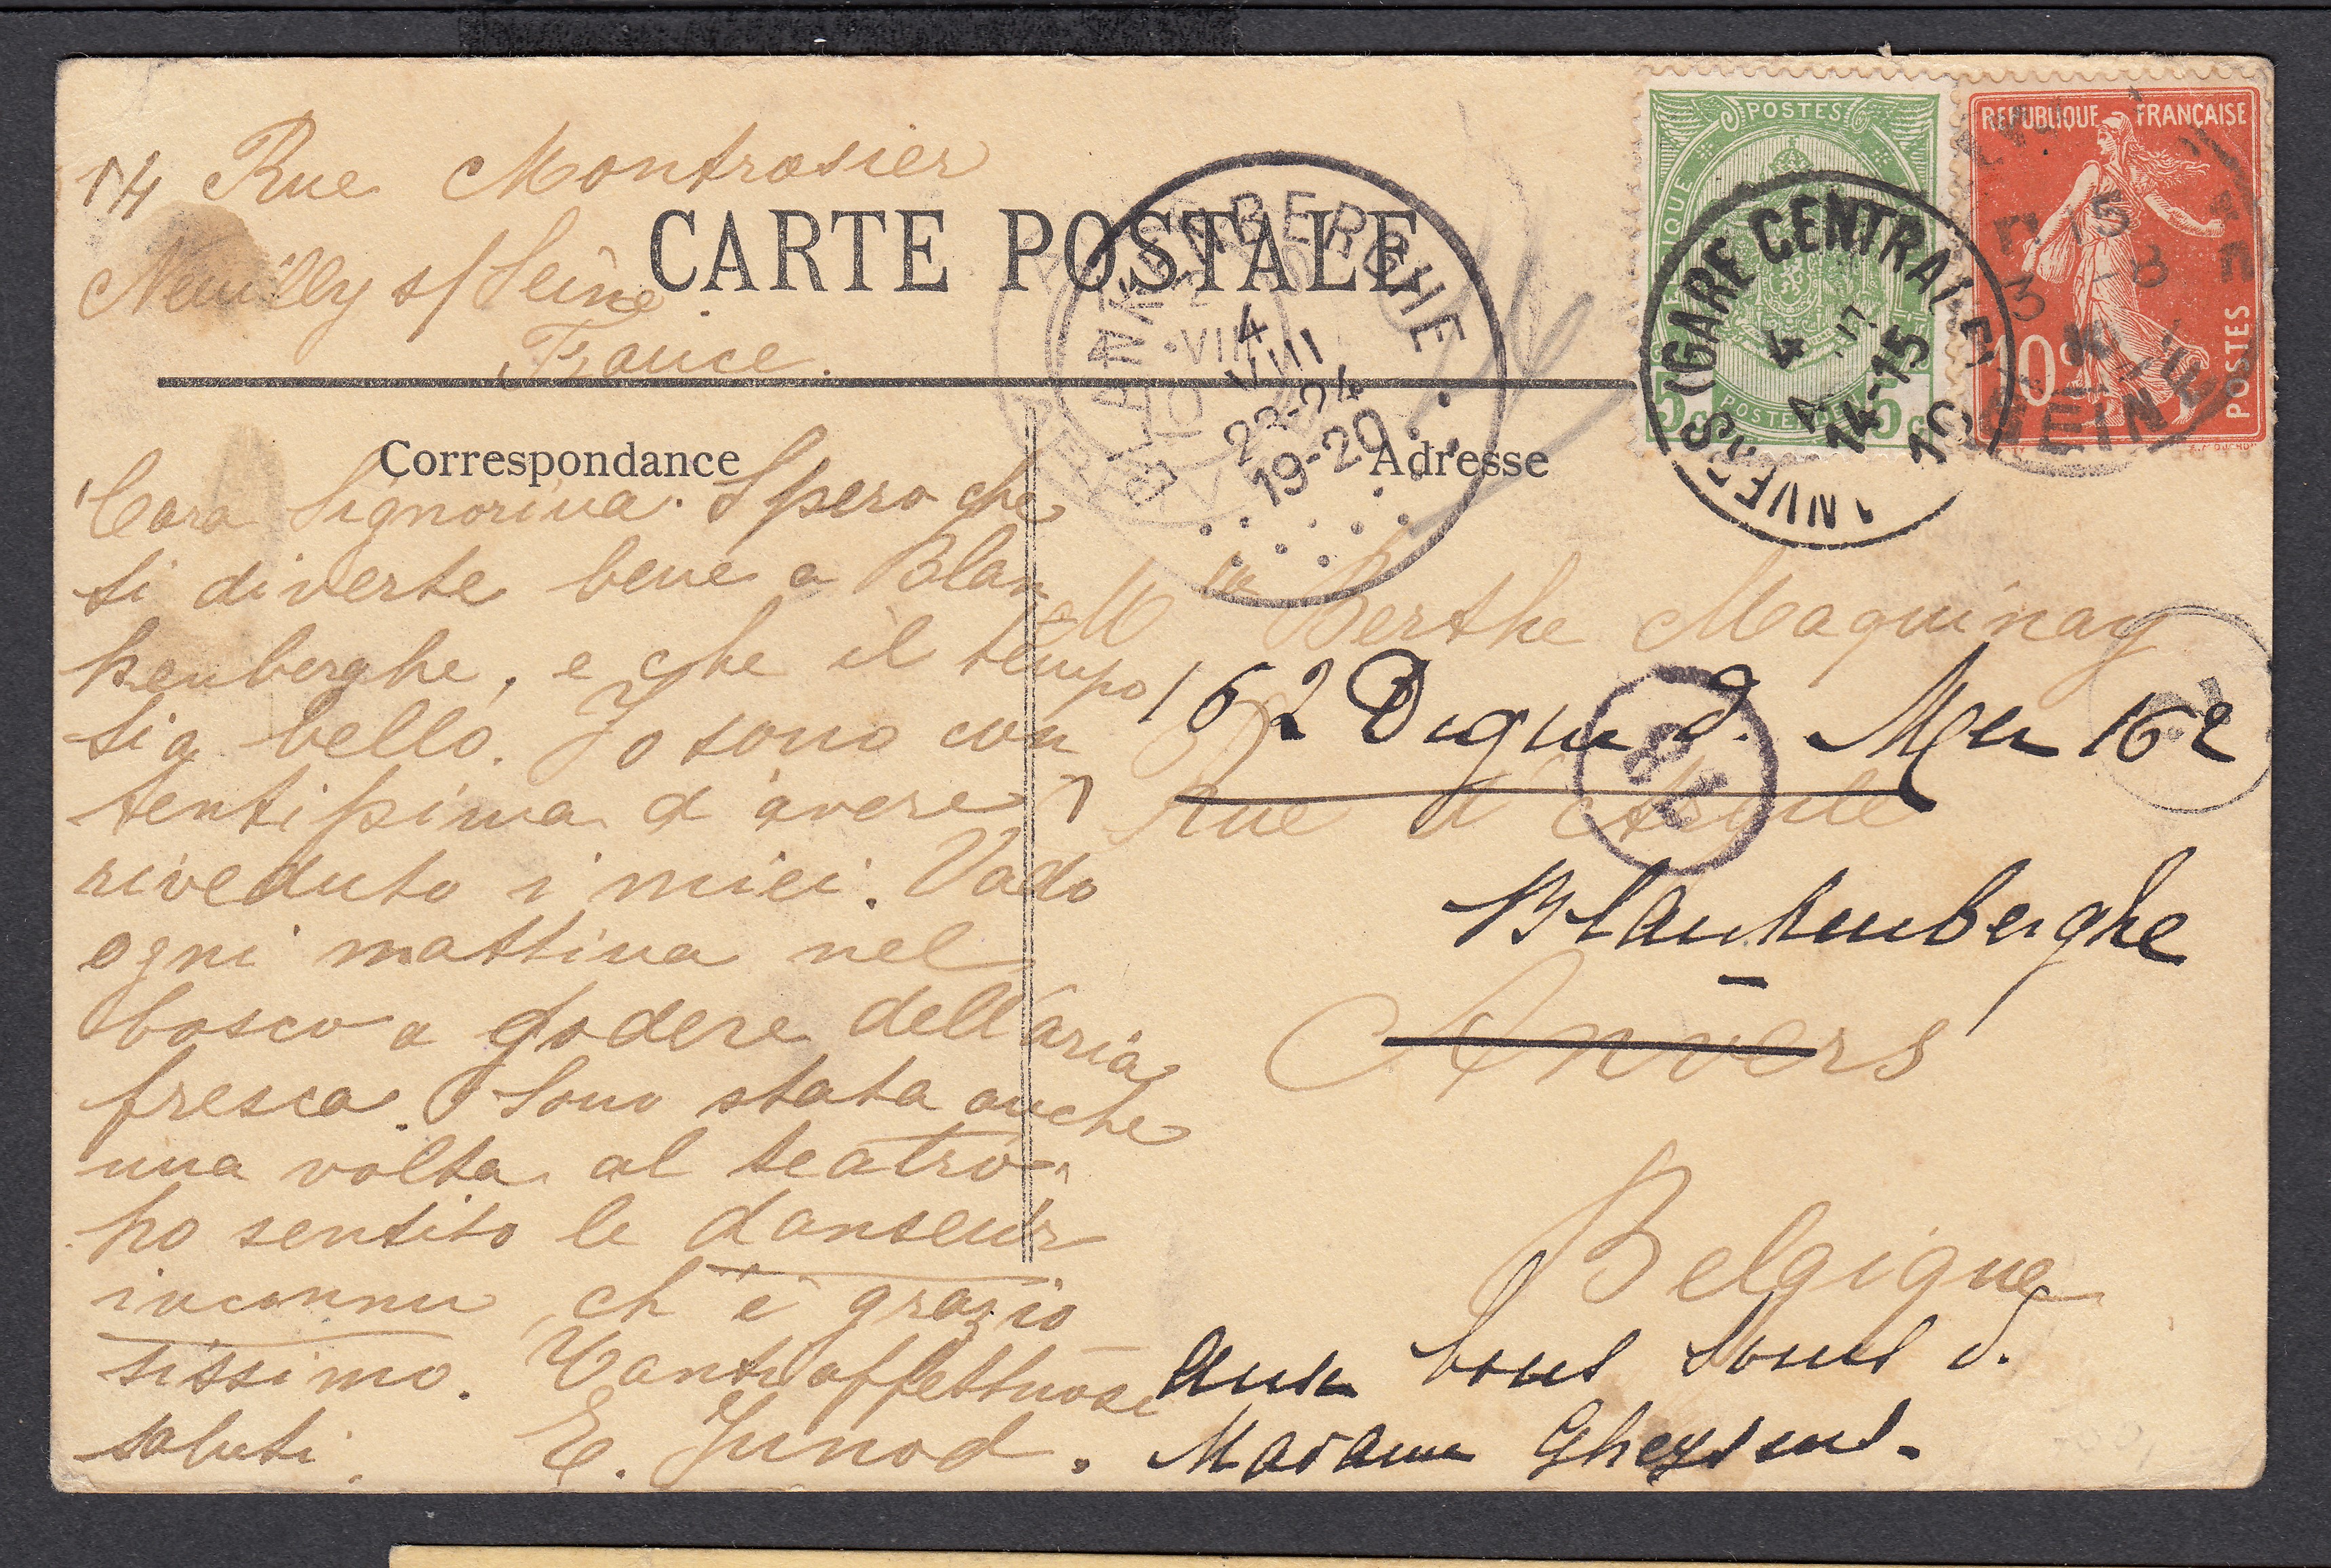 14 Rue Montrosier
Neuilly s/ Seine.
France.
CARTE POSTALE
Correspondance
Adresse
Cara Signorina. Spero che
si diverte bene a Blan
kenberghe, e che il tempo
sia bello. Io sono con
tentissima d'avere
riveduto i miei. Vado
ogni mattina nel
bosco a godere dell'aria
fresca. Sono stata anche
una volta al teatro
ho sentito le danseur
inconnu, ch'è grazio
sissimo. Tanti affettuosi
saluti. E. Junod.
POSTES
5c 5c
POSTERIJEN
REPUBLIQUE FRANÇAISE
10c
POSTES
BLANKENBERGHE
4
VIII
23-24
19-20
ANVERS (GARE CENTRALE)
4
14-15
10
15
3 -8
10
SEINE
Mlle Berthe Maquinay
162 Digue d. Mer 162
7 Rue
Blankenberghe
Anvers
Belgique
aux bons soins d.
Madame Gheysens.